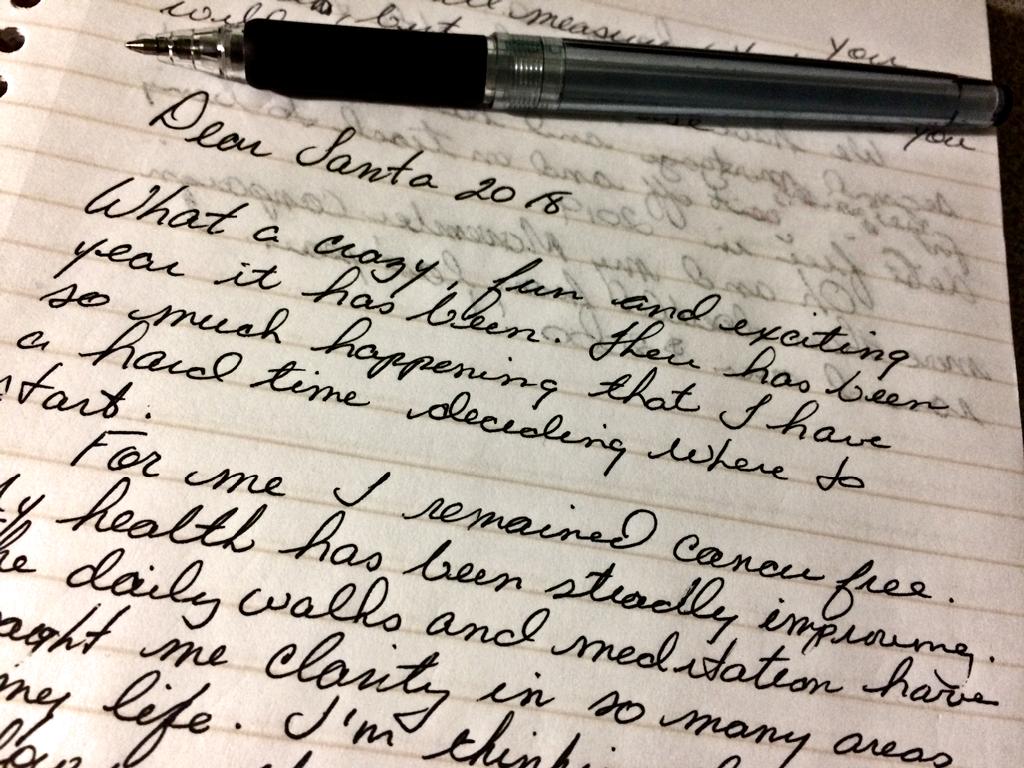 measure you
would, but
you
Dear Santa 2018
What a crazy, fun and exciting
year it has been. There has been
so much happening that I have
a hard time deciding where to
start.
For me I remained cancer free.
My health has been steadily improving.
The daily walks and meditation have
me clarity in so many areas
my life. I'm